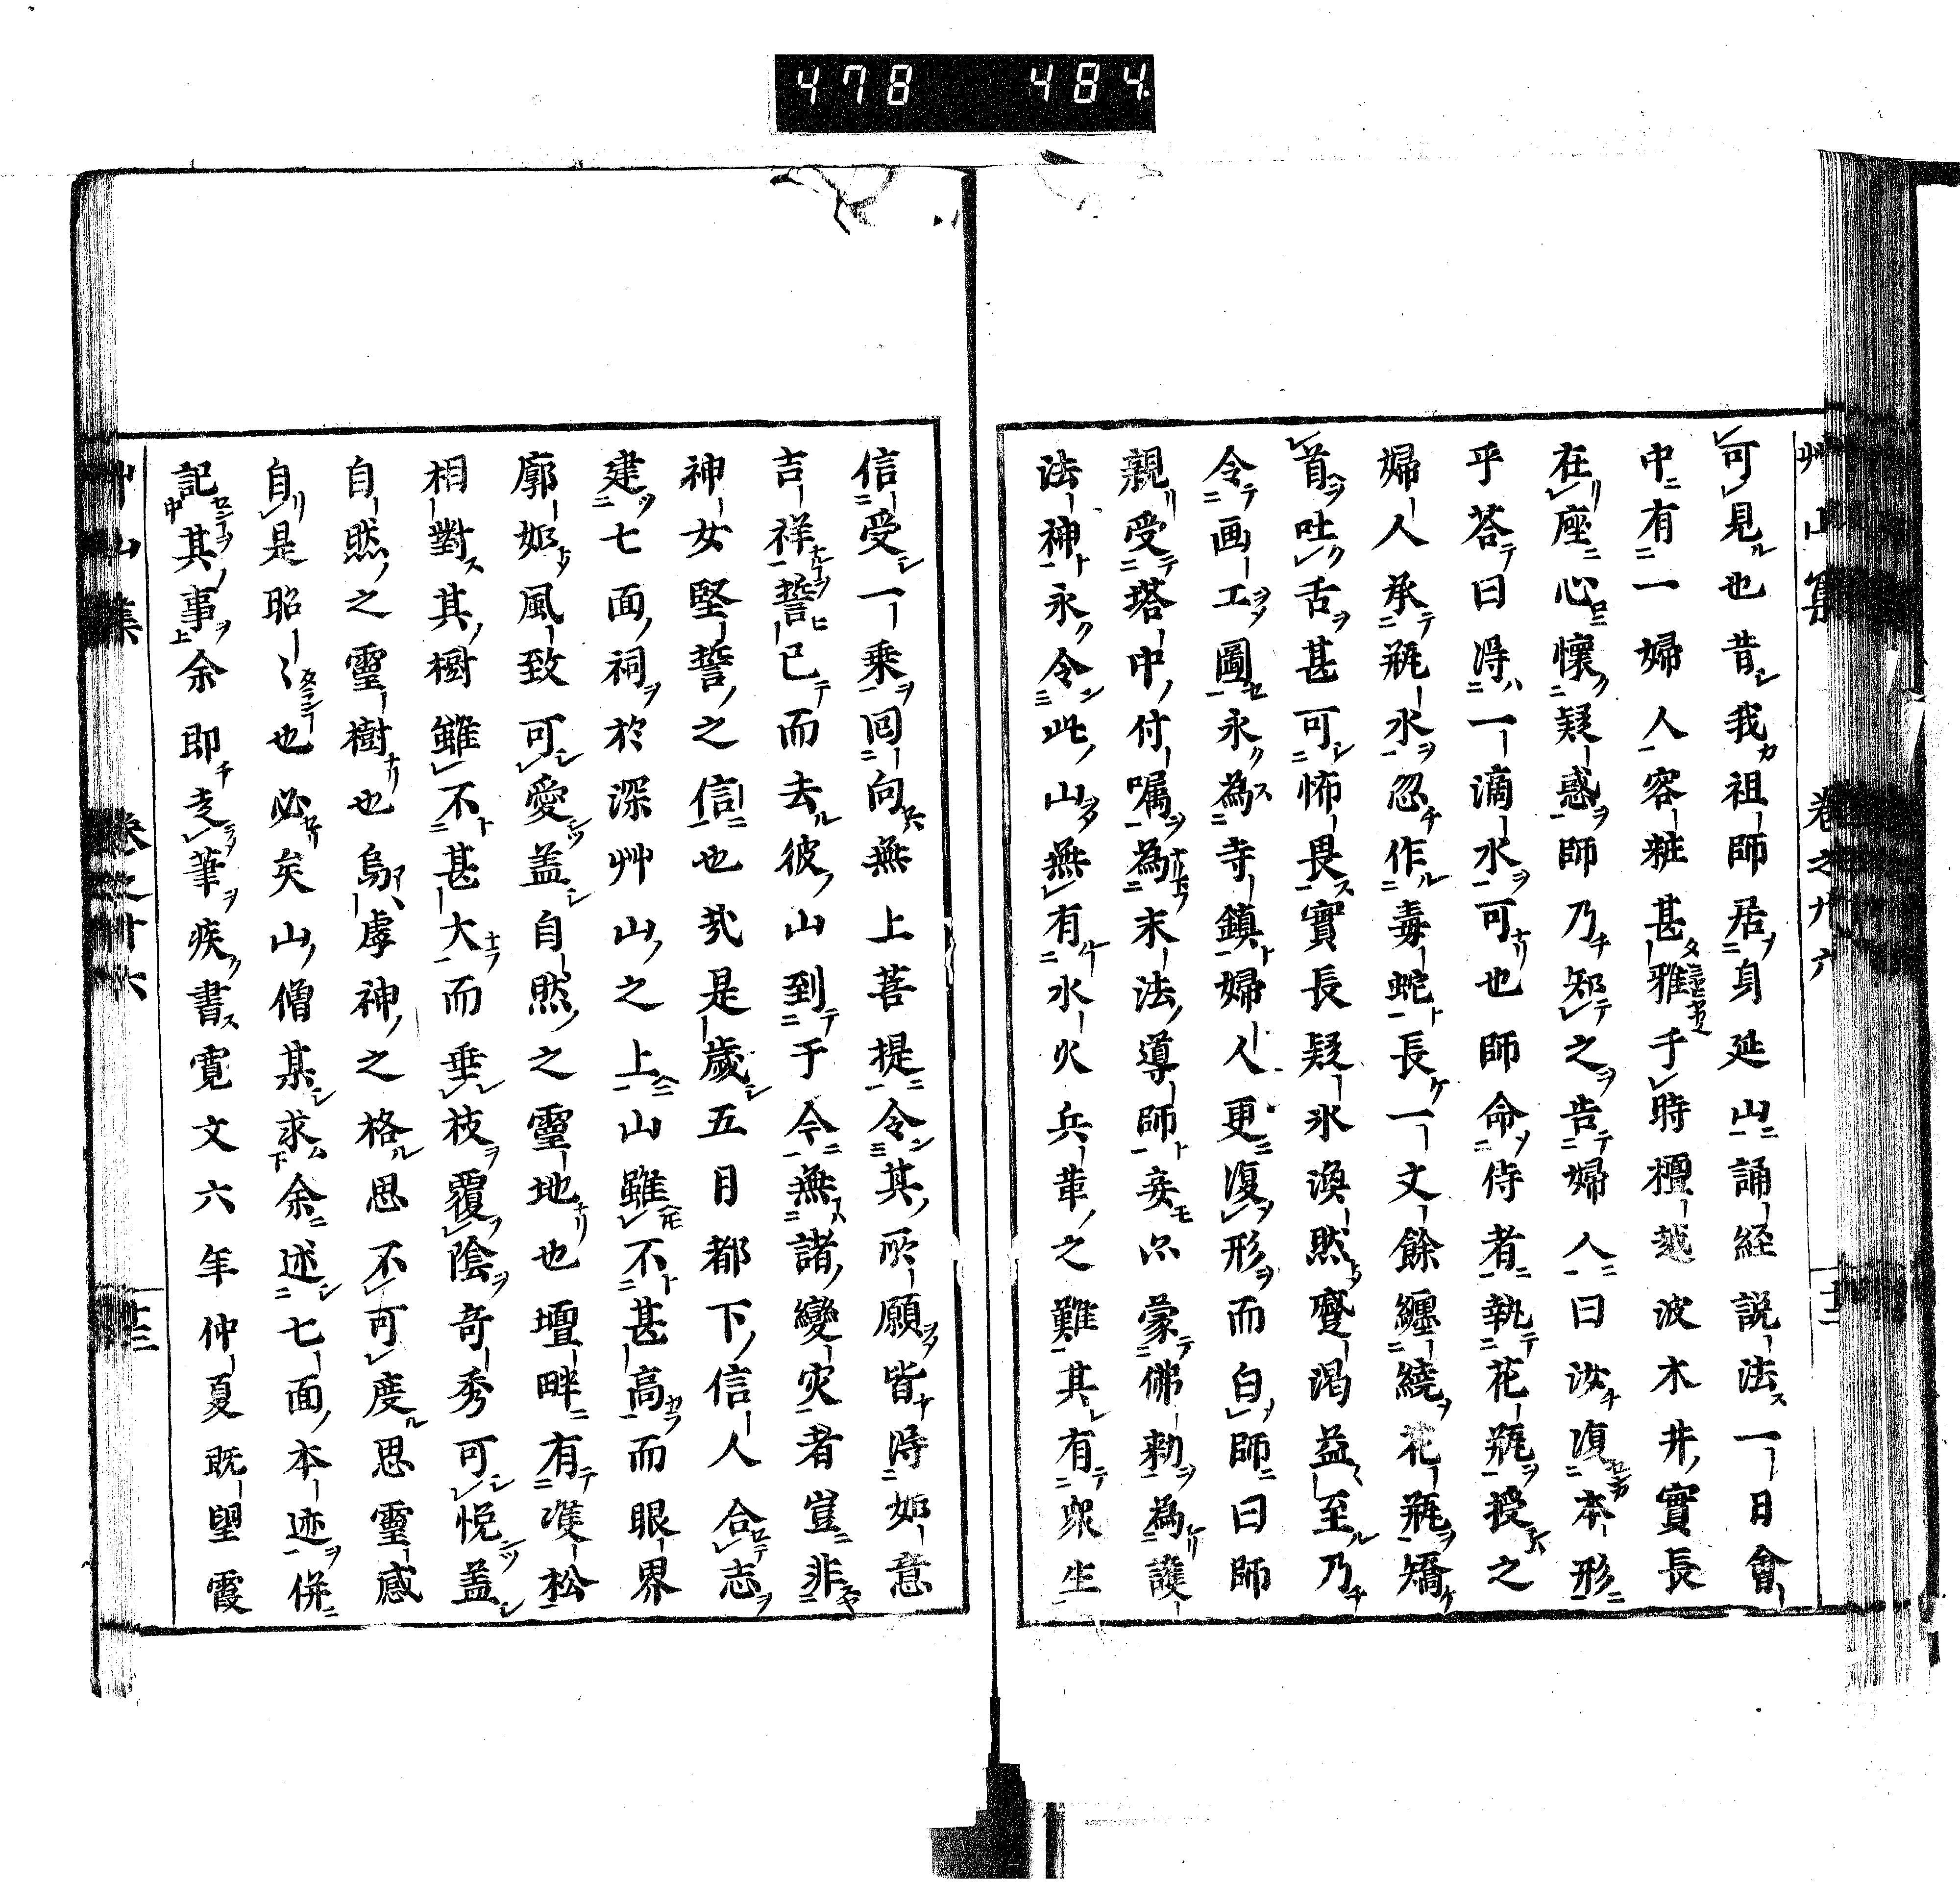 478 484
艸山集 卷之廿六
可見也昔我祖師居身延山誦経説法一日會
中有一婦人容粧甚雅于時檀越波木井實長
在座心懷疑惑師乃知之告婦人曰汝復本形
乎荅曰得一滴水可也師命侍者執花瓶授之
婦人承瓶水忽作毒蛇長一丈餘纏繞花瓶矯
首吐舌甚可怖畏實長疑氷渙然蹇渇益至乃
令画工圖永為寺鎮婦人更復形而白師曰師
親受塔中付嘱為末法導師妾亦蒙佛勅為護
法神永令此山無有水火兵革之難其有衆生
信受一乗回向無上菩提令其所願皆得如意
吉祥誓已而去彼山到于今無諸變灾者豈非
神女堅誓之信也哉是歳五月都下信人合志
建七面祠於深艸山之上山雖不甚高而眼界
廓如風致可愛盖自然之靈地也壇畔有雙松
相對其樹雖不甚大而垂枝覆陰奇秀可悦盖
自然之靈樹也烏虖神之格思不可度思靈感
自是昭〻也必矣山僧某求余述七面本迹併
記其事余即走筆疾書寛文六年仲夏既望霞
艸山集 卷之廿六